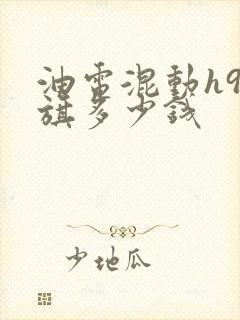 油电混動h9
旗多少钱
少地瓜